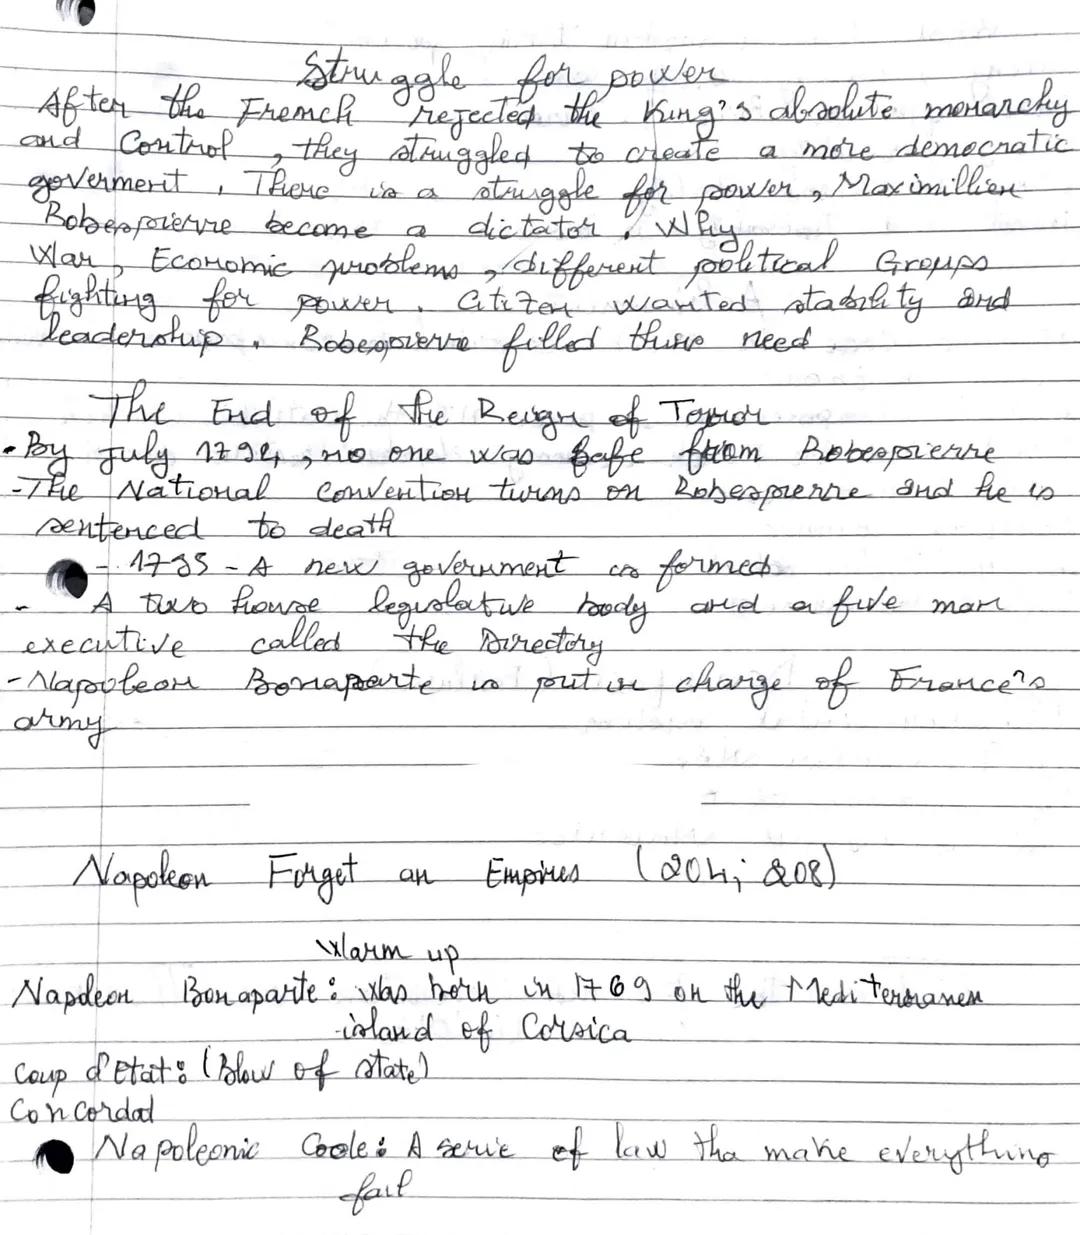 Struggle for power
After the French rejected the King's absolute monarchy
and Control, they struggled to create a more democratic
goverment, There is a struggle for power, Maximillien
Robespierre become a dictator. Why
War, Economic problems, different political Groups
fighting for power. Citizen wanted stability and
leadership. Robespierre filled these need.
The End of the Reign of Terror
- By july 1794, no one was safe from Robespierre
- The National Convention turns on Robespierre and he is
sentenced to death
- 1795 - A new government is formed
- A two house legislative body and a five man
executive called the Directory
- Napoleon Bonaparte is put in charge of France's
army
Napoleon Forget an Empires (204; 208)
Warm up
Napoleon Bonaparte: was born in 1769 on the Mediterranean
island of Corsica
Coup d'Etat: (Blow of state)
Concordat
Napoleonic Code: A serie of law tha make everything
fail